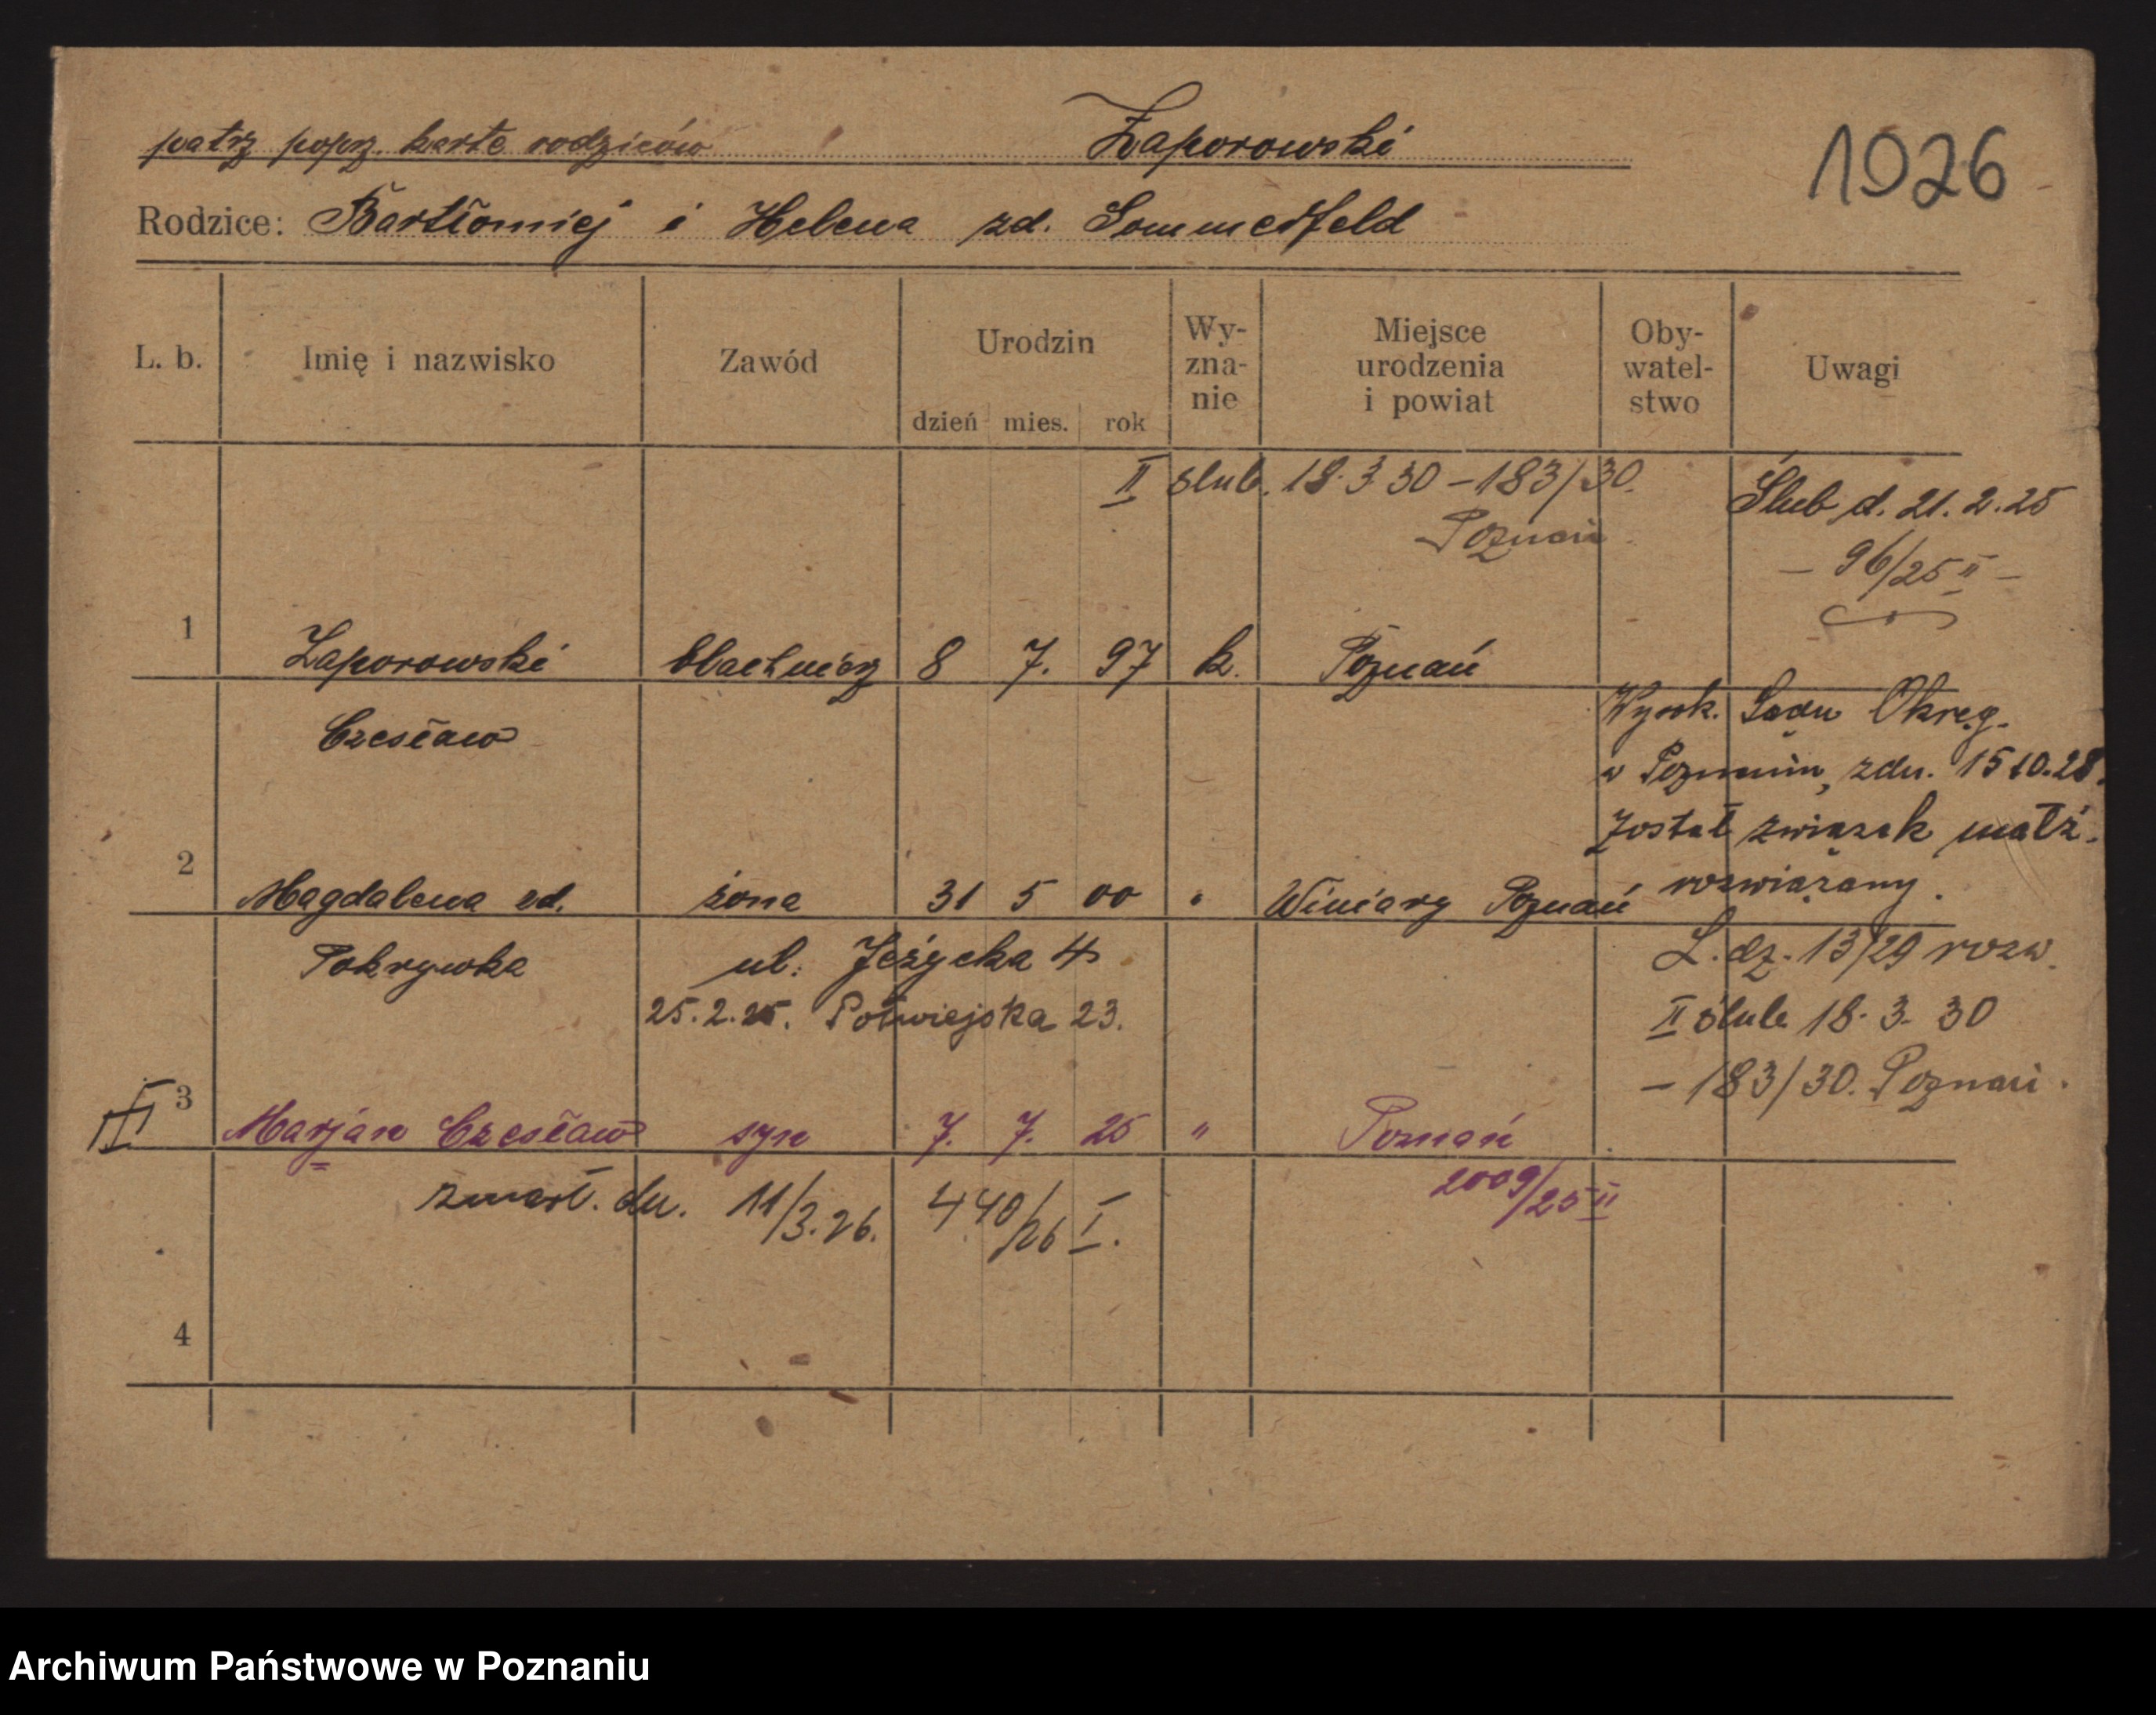 patrz poprz. kartę rodziców Zaporowski 1926
Rodzice: Bartłomiej i Helena zd. Sommerfeld
L. b. Imię i nazwisko Zawód Urodzin Wy-zna-nie Miejsce urodzenia i powiat Oby-watel-stwo Uwagi
dzień mies. rok
II ślub. 18.3 30 – 183/30.
Poznań
Ślub d. 21.2.25
– 96/25 II –
1 Zaporowski 8 7. 97 k. Poznań
Czesław
Wyrok. Sądu Okręg.
w Poznaniu, zdn. 15 10.28.
został związek małż.
rozwiązany.
2 Magdalena zd. żona 31 5 00 " Winiary Poznań
Pokrywka ul. Jeżycka 4
25.2.25. Półwiejska 23.
L. dz. 13/29 rozw.
II ślub 18. 3. 30
– 183/30. Poznań.
III 3 Marjan Czesław syn 7. 7. 25 " Poznań
2009/25 II
zmarł. dn. 11/3.26. 440/26 I.
4
Archiwum Państwowe w Poznaniu